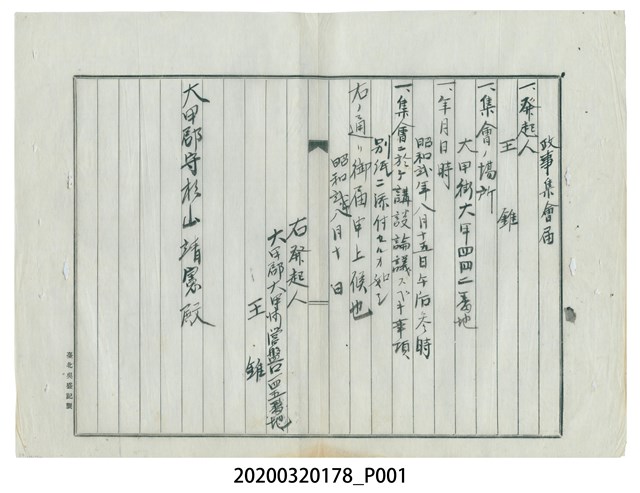 政事集會届
一、發起人
王 錐
一、集會ノ場所
大甲街大甲四四二番地
一、年月日時
昭和貳年八月十五日午后參時
一、集會ニ於ケル講談論議スベキ事項
別紙ニ添付セル如シ
右ノ通リ御届申上候也
昭和貳 八月十 日
右發起人
大甲郡大甲街營盤口四五番地
王 錐
大甲郡守杉山靖憲殿
20200320178_P001